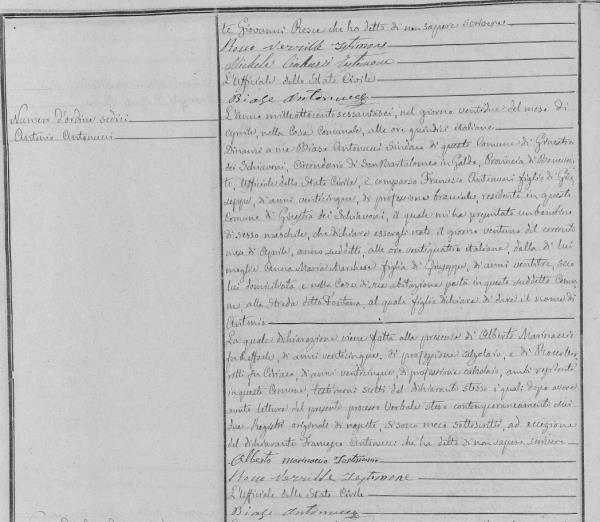 te Giovanni Resce che ha detto di non sapere scrivere
Rocco Verrilli Testimone
Michele Testimone
L'Uffiziale dello Stato Civile
Biase Antonucci
Numero d'ordine sedici
Antonio Antonucci
L'anno milleottocento sessantasei, nel giorno ventidue del mese di
Aprile, nella Casa Comunale, alle ore quindici italiane
Dinanzi a me Biase Antonucci Sindaco di questo Comune di Ginestra
dei Schiavoni, Circondario di San Bartolomeo in Galdo, Provincia di Beneven-
to, Uffiziale dello Stato Civile, è comparso Francesco Antonucci figlio di Giu-
seppe, di anni venticinque, di professione bracciale, residente in questo
Comune di Ginestra dei Schiavoni, il quale mi ha presentato un bambino
di sesso maschile, che dichiara essergli nato il giorno ventuno del corrente
mese di Aprile, anno suddetto, alle ore ventiquattro italiane, dalla di lui
moglie Anna Maria Marchese figlia di Giuseppe, di anni ventitre, seco
lui domiciliata e nella Casa di sua abitazione posta in questo suddetto Comu-
ne, alla Strada detta Fontana, al quale figlio dichiara di dare il nome di
Antonio
La quale dichiarazione viene fatta alla presenza di Alberto Marinaccio
fu Raffaele, di anni venticinque, di professione calzolaio, e di Rocco Ver-
rilli fu Ciriaco, di anni venticinque, di professione calzolaio, ambi residenti
in questo Comune, testimoni scelti dal dichiarante stesso i quali dopo avere
avuto lettura del presente processo Verbale steso contemporaneamente sui
due Registri originali di nascite, si sono meco sottoscritti, ad eccezione
del dichiarante Francesco Antonucci che ha detto di non sapere scrivere
Alberto Marinaccio Testimonio
Rocco Verrilli Testimone
L'Uffiziale dello Stato Civile
Biase Antonucci